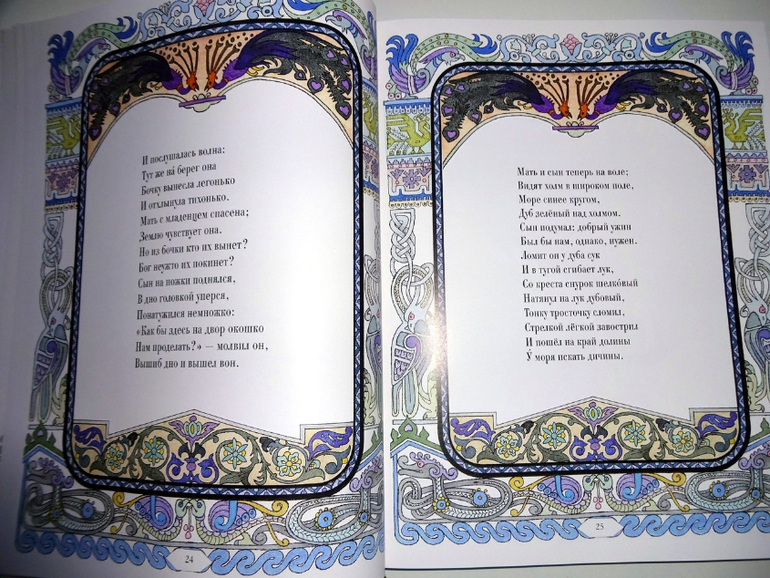 И послушалась волна:
Тут же на́ берег она
Бочку вынесла легонько
И отхлынула тихонько.
Мать с младенцем спасена;
Землю чувствует она.
Но из бочки кто их вынет?
Бог неужто их покинет?
Сын на ножки поднялся,
В дно головкой уперся,
Понатужился немножко:
«Как бы здесь на двор окошко
Нам проделать?» — молвил он,
Вышиб дно и вышел вон.
24
Мать и сын теперь на воле;
Видят холм в широком поле,
Море синее кругом,
Дуб зелёный над холмом.
Сын подумал: добрый ужин
Был бы нам, однако, нужен.
Ломит он у дуба сук
И в тугой сгибает лук,
Со креста снурок шелко́вый
Натянул на лук дубовый,
Тонку тросточку сломил,
Стрелкой лёгкой завострил
И пошёл на край долины
У́ моря искать дичины.
25